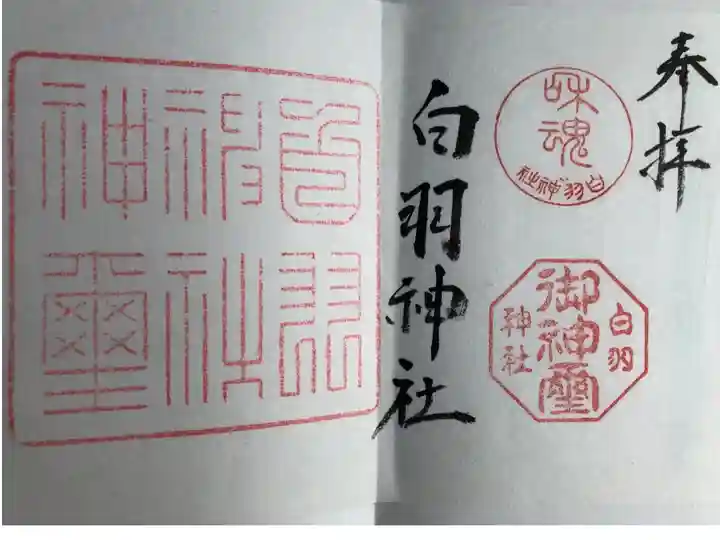 奉拝
和魂
白羽神社
御神璽
白羽
神社
白羽神社
白羽
神社
神璽